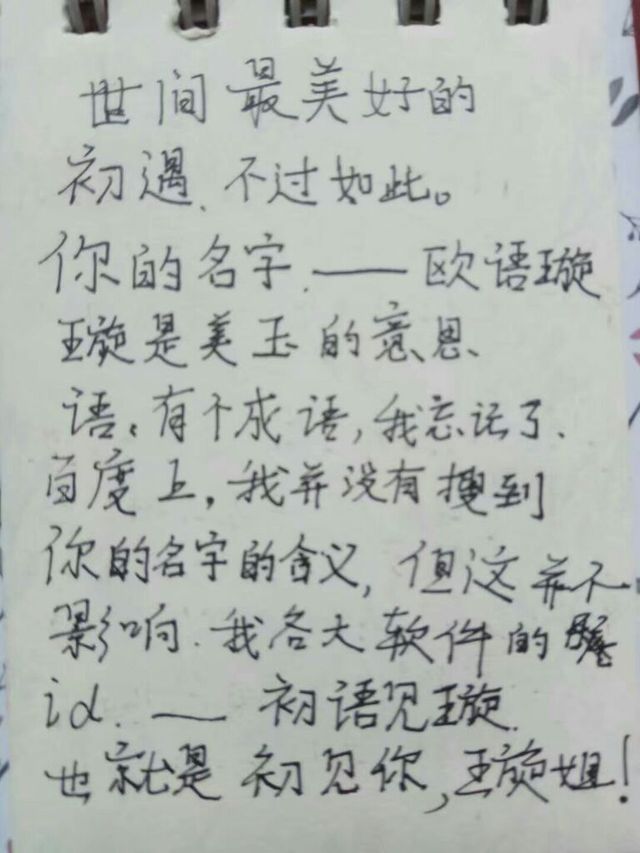 世间最美好的
初遇、不过如此。
你的名字.——欧语璇
璇是美玉的意思、
语。有个成语,我忘记了.
百度上,我并没有搜到
你的名字的含义,但这并不
影响.我各大软件的
id.——初语见璇.
也就是初见你,璇姐!